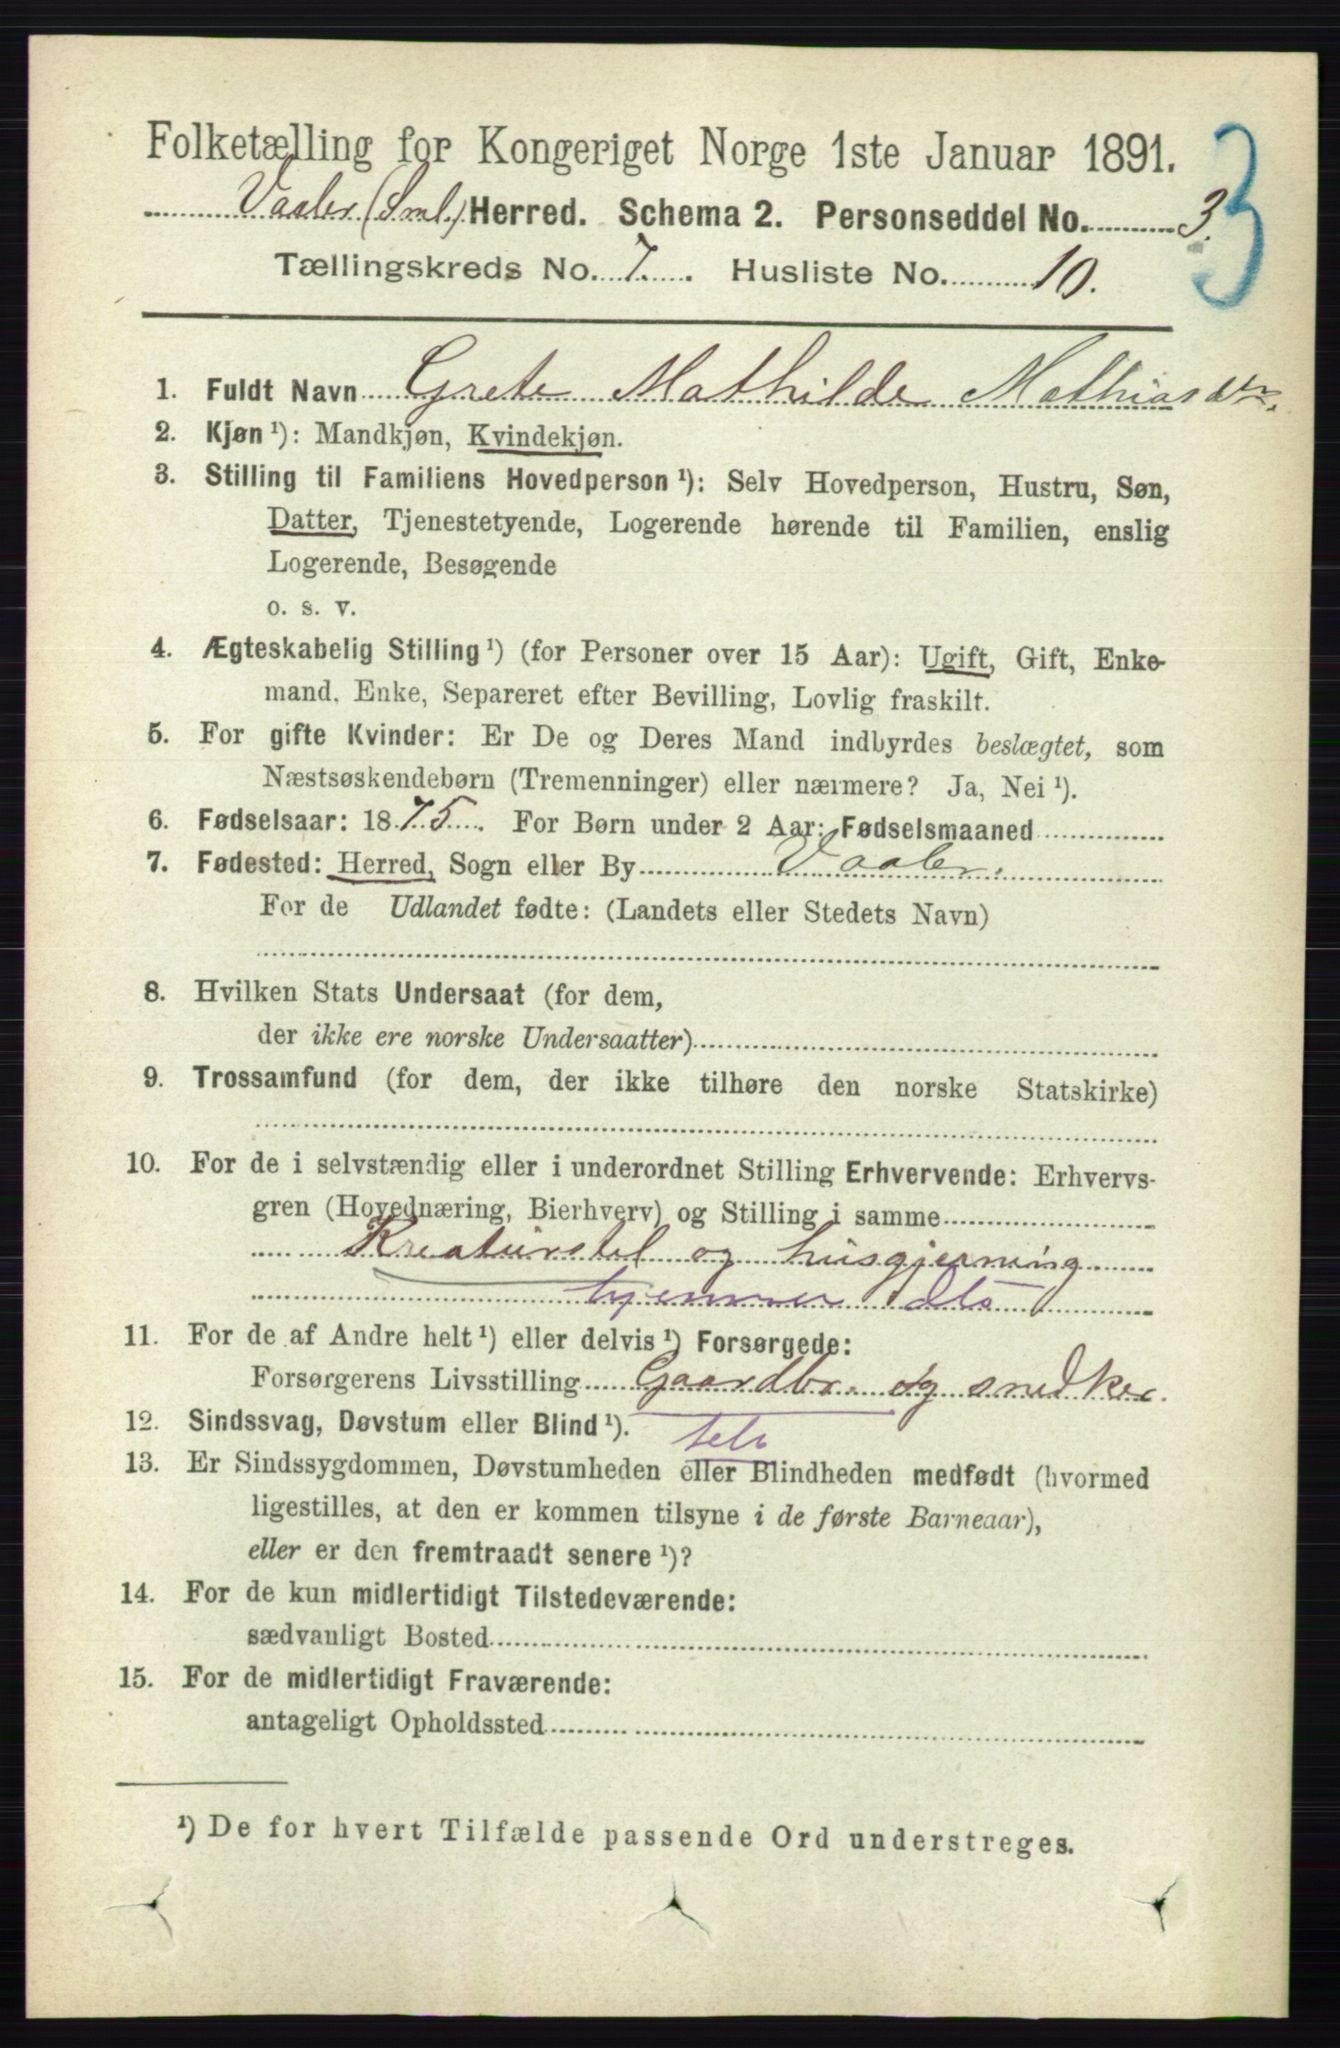 Folketælling for Kongeriget Norge 1ste Januar 1891.
3
Vaaler (Sml.) Herred. Schema 2. Personseddel No. 3.
Tællingskreds No. 7. Husliste No. 10.
1. Fuldt Navn Grete Mathilde Mathiasdtr.
2. Kjøn ¹): Mandkjøn, Kvindekjøn.
3. Stilling til Familiens Hovedperson ¹): Selv Hovedperson, Hustru, Søn,
Datter, Tjenestetyende, Logerende hørende til Familien, enslig
Logerende, Besøgende
o. s. v.
4. Ægteskabelig Stilling ¹) (for Personer over 15 Aar): Ugift, Gift, Enke-
mand, Enke, Separeret efter Bevilling, Lovlig fraskilt.
5. For gifte Kvinder: Er De og Deres Mand indbyrdes beslægtet, som
Næstsøskendebørn (Tremenninger) eller nærmere? Ja, Nei ¹).
6. Fødselsaar: 1875. For Børn under 2 Aar: Fødselsmaaned
7. Fødested: Herred, Sogn eller By Vaaler.
For de Udlandet fødte: (Landets eller Stedets Navn)
8. Hvilken Stats Undersaat (for dem,
der ikke ere norske Undersaatter)
9. Trossamfund (for dem, der ikke tilhøre den norske Statskirke)
10. For de i selvstændig eller i underordnet Stilling Erhvervende: Erhvervs-
gren (Hovednæring, Bierhverv) og Stilling i samme
Kreaturstel og husgjerning
hjemmev dto
11. For de af Andre helt ¹) eller delvis ¹) Forsørgede:
Forsørgerens Livsstilling Gaardbr. og snedker.
12. Sindssvag, Døvstum eller Blind ¹).
selv
13. Er Sindssygdommen, Døvstumheden eller Blindheden medfødt (hvormed
ligestilles, at den er kommen tilsyne i de første Barneaar),
eller er den fremtraadt senere ¹)?
14. For de kun midlertidigt Tilstedeværende:
sædvanligt Bosted
15. For de midlertidigt Fraværende:
antageligt Opholdssted
¹) De for hvert Tilfælde passende Ord understreges.